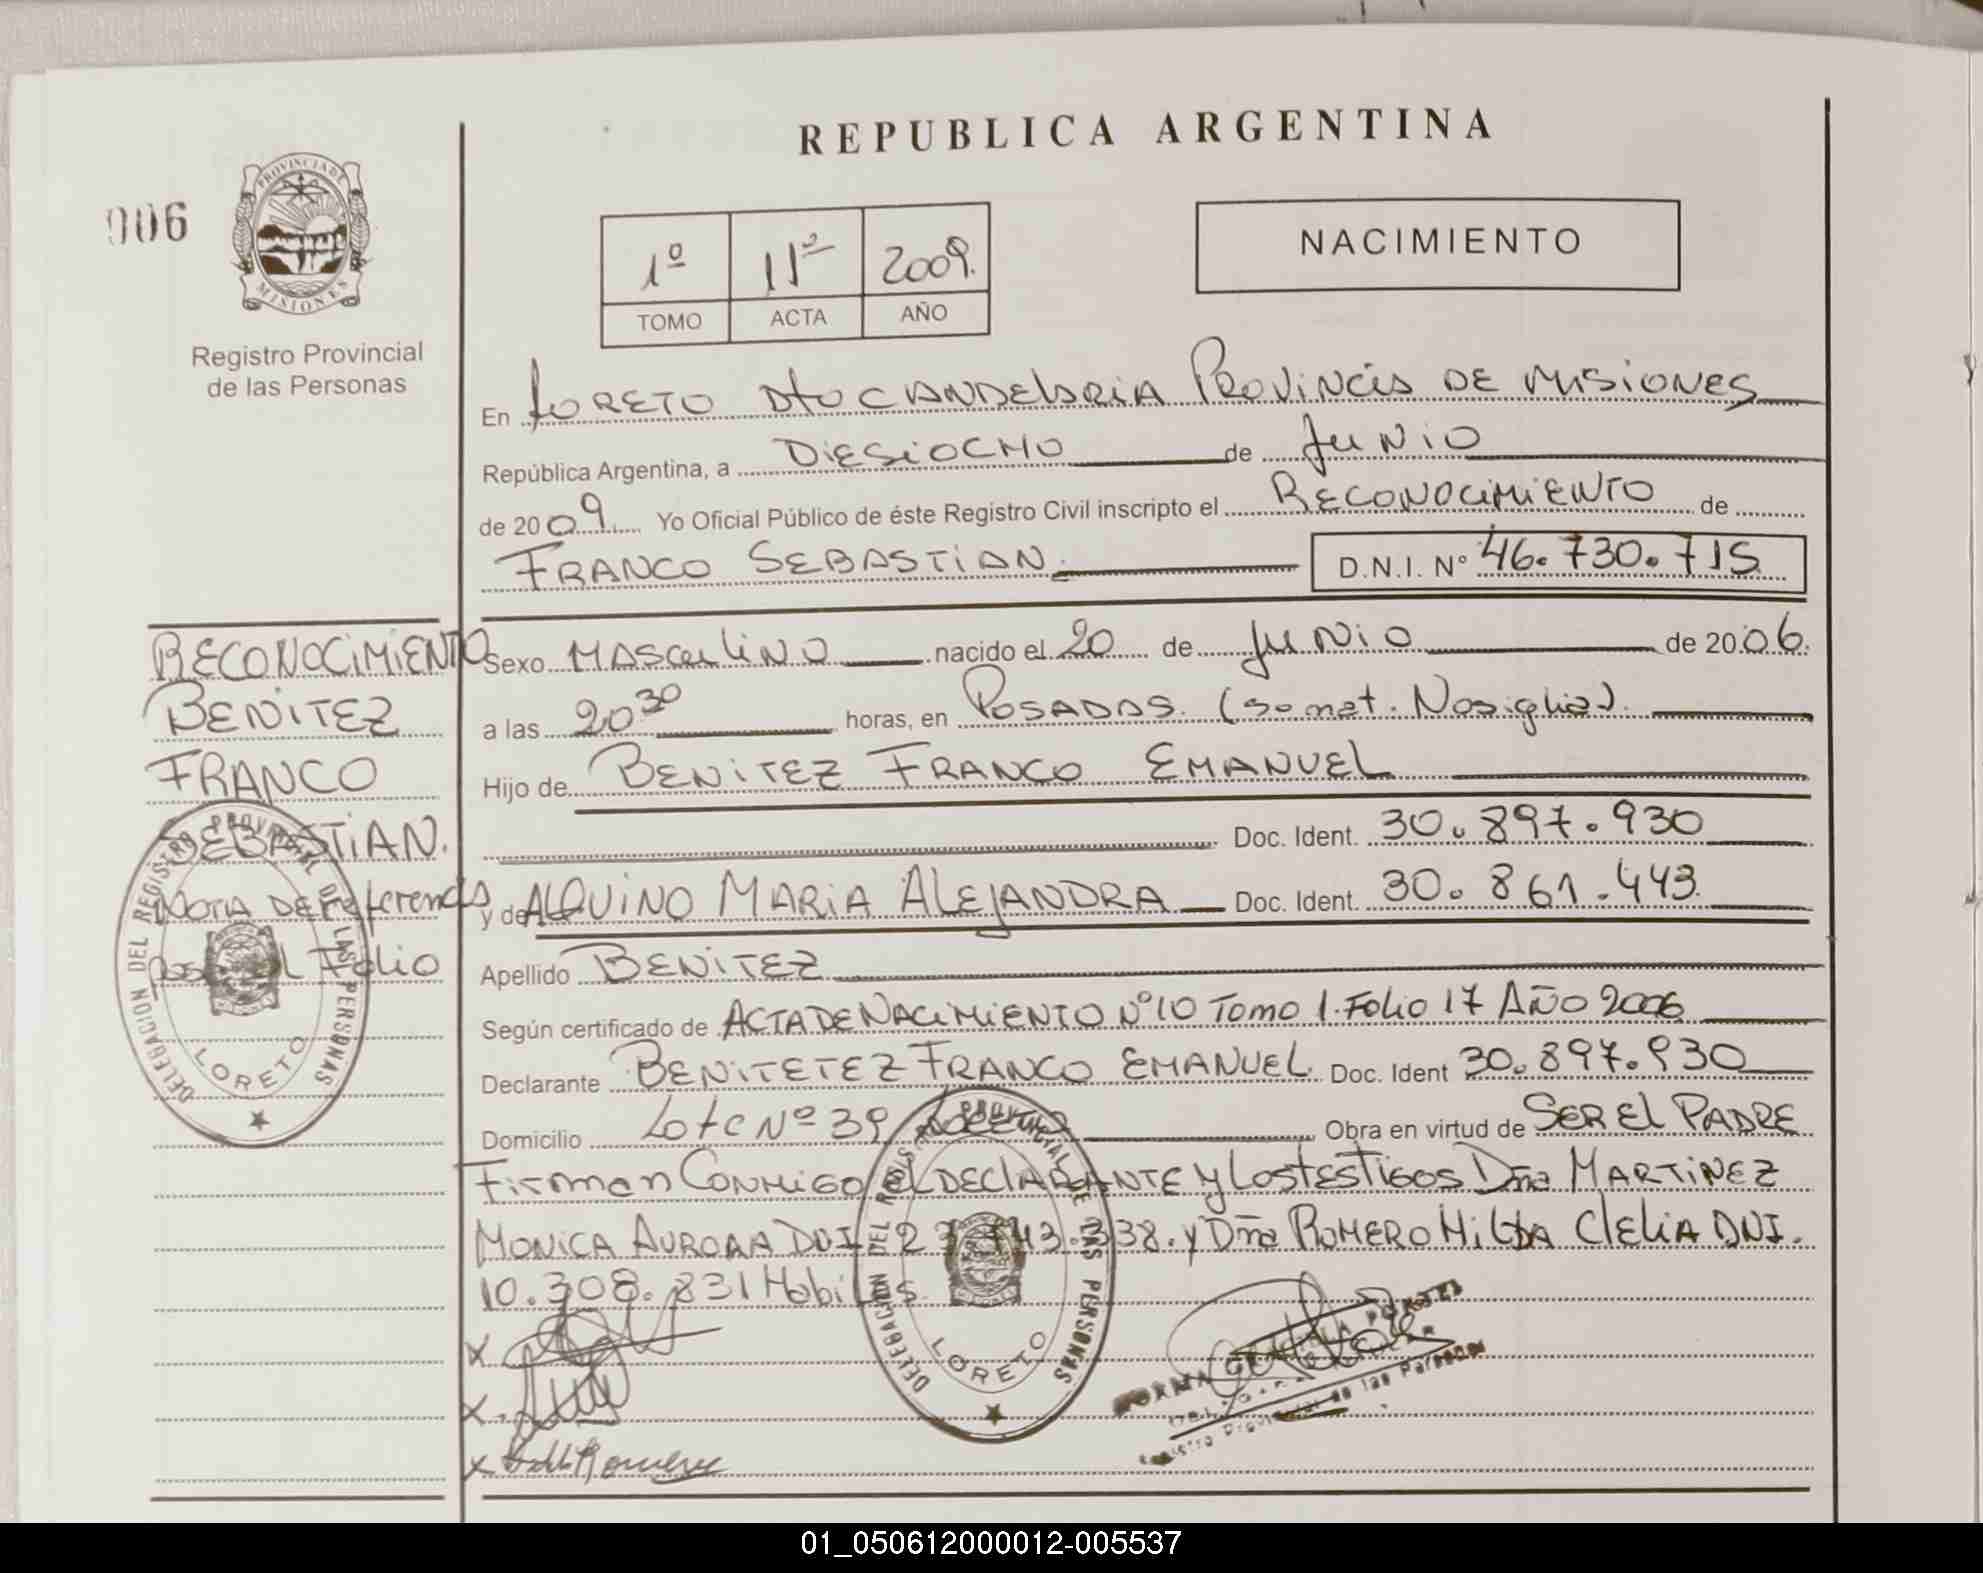 REPUBLICA ARGENTINA
006
PROVINCIA DE
MISIONES
Registro Provincial
de las Personas
1º 11º 2009.
TOMO ACTA AÑO
NACIMIENTO
En LORETO Dto CANDELARIA PROVINCIA DE MISIONES
República Argentina, a DIESIOCHO de JUNIO
de 2009. Yo Oficial Público de éste Registro Civil inscripto el RECONOCIMIENTO de
FRANCO SEBASTIAN. D.N.I. Nº 46.730.715
RECONOCIMIENTO
BENITEZ
FRANCO
SEBASTIAN.
NOTA DE Referencia
al Folio
Sexo MASCULINO nacido el 20 de JUNIO de 2006.
a las 20 30 horas, en POSADAS. (Sa nat. Nosiglia).
Hijo de BENITEZ FRANCO EMANUEL
Doc. Ident. 30.897.930
y de AQUINO MARIA ALEJANDRA Doc. Ident. 30.861.443
Apellido BENITEZ
Según certificado de ACTA DE NACIMIENTO Nº 10 Tomo 1. Folio 17 AÑO 2006
Declarante BENITETEZ FRANCO EMANUEL. Doc. Ident 30.897.930
Domicilio Lote Nº 39 Obra en virtud de SER EL PADRE
Firman CONMIGO EL DECLARANTE y LOS TESTIGOS Dña MARTINEZ
MONICA AURORA DNI 338. y Dña ROMERO HILDA CLELIA DNI.
10.308.831 Habiles
X
X
X Romero
DELEGACION DEL REGISTRO PROVINCIAL DE LAS PERSONAS
LORETO
DELEGACION DEL REGIS PROVINCIAL DE LAS PERSONAS
LORETO
NORMA
Registro Provincial de las Personas
01_050612000012-005537